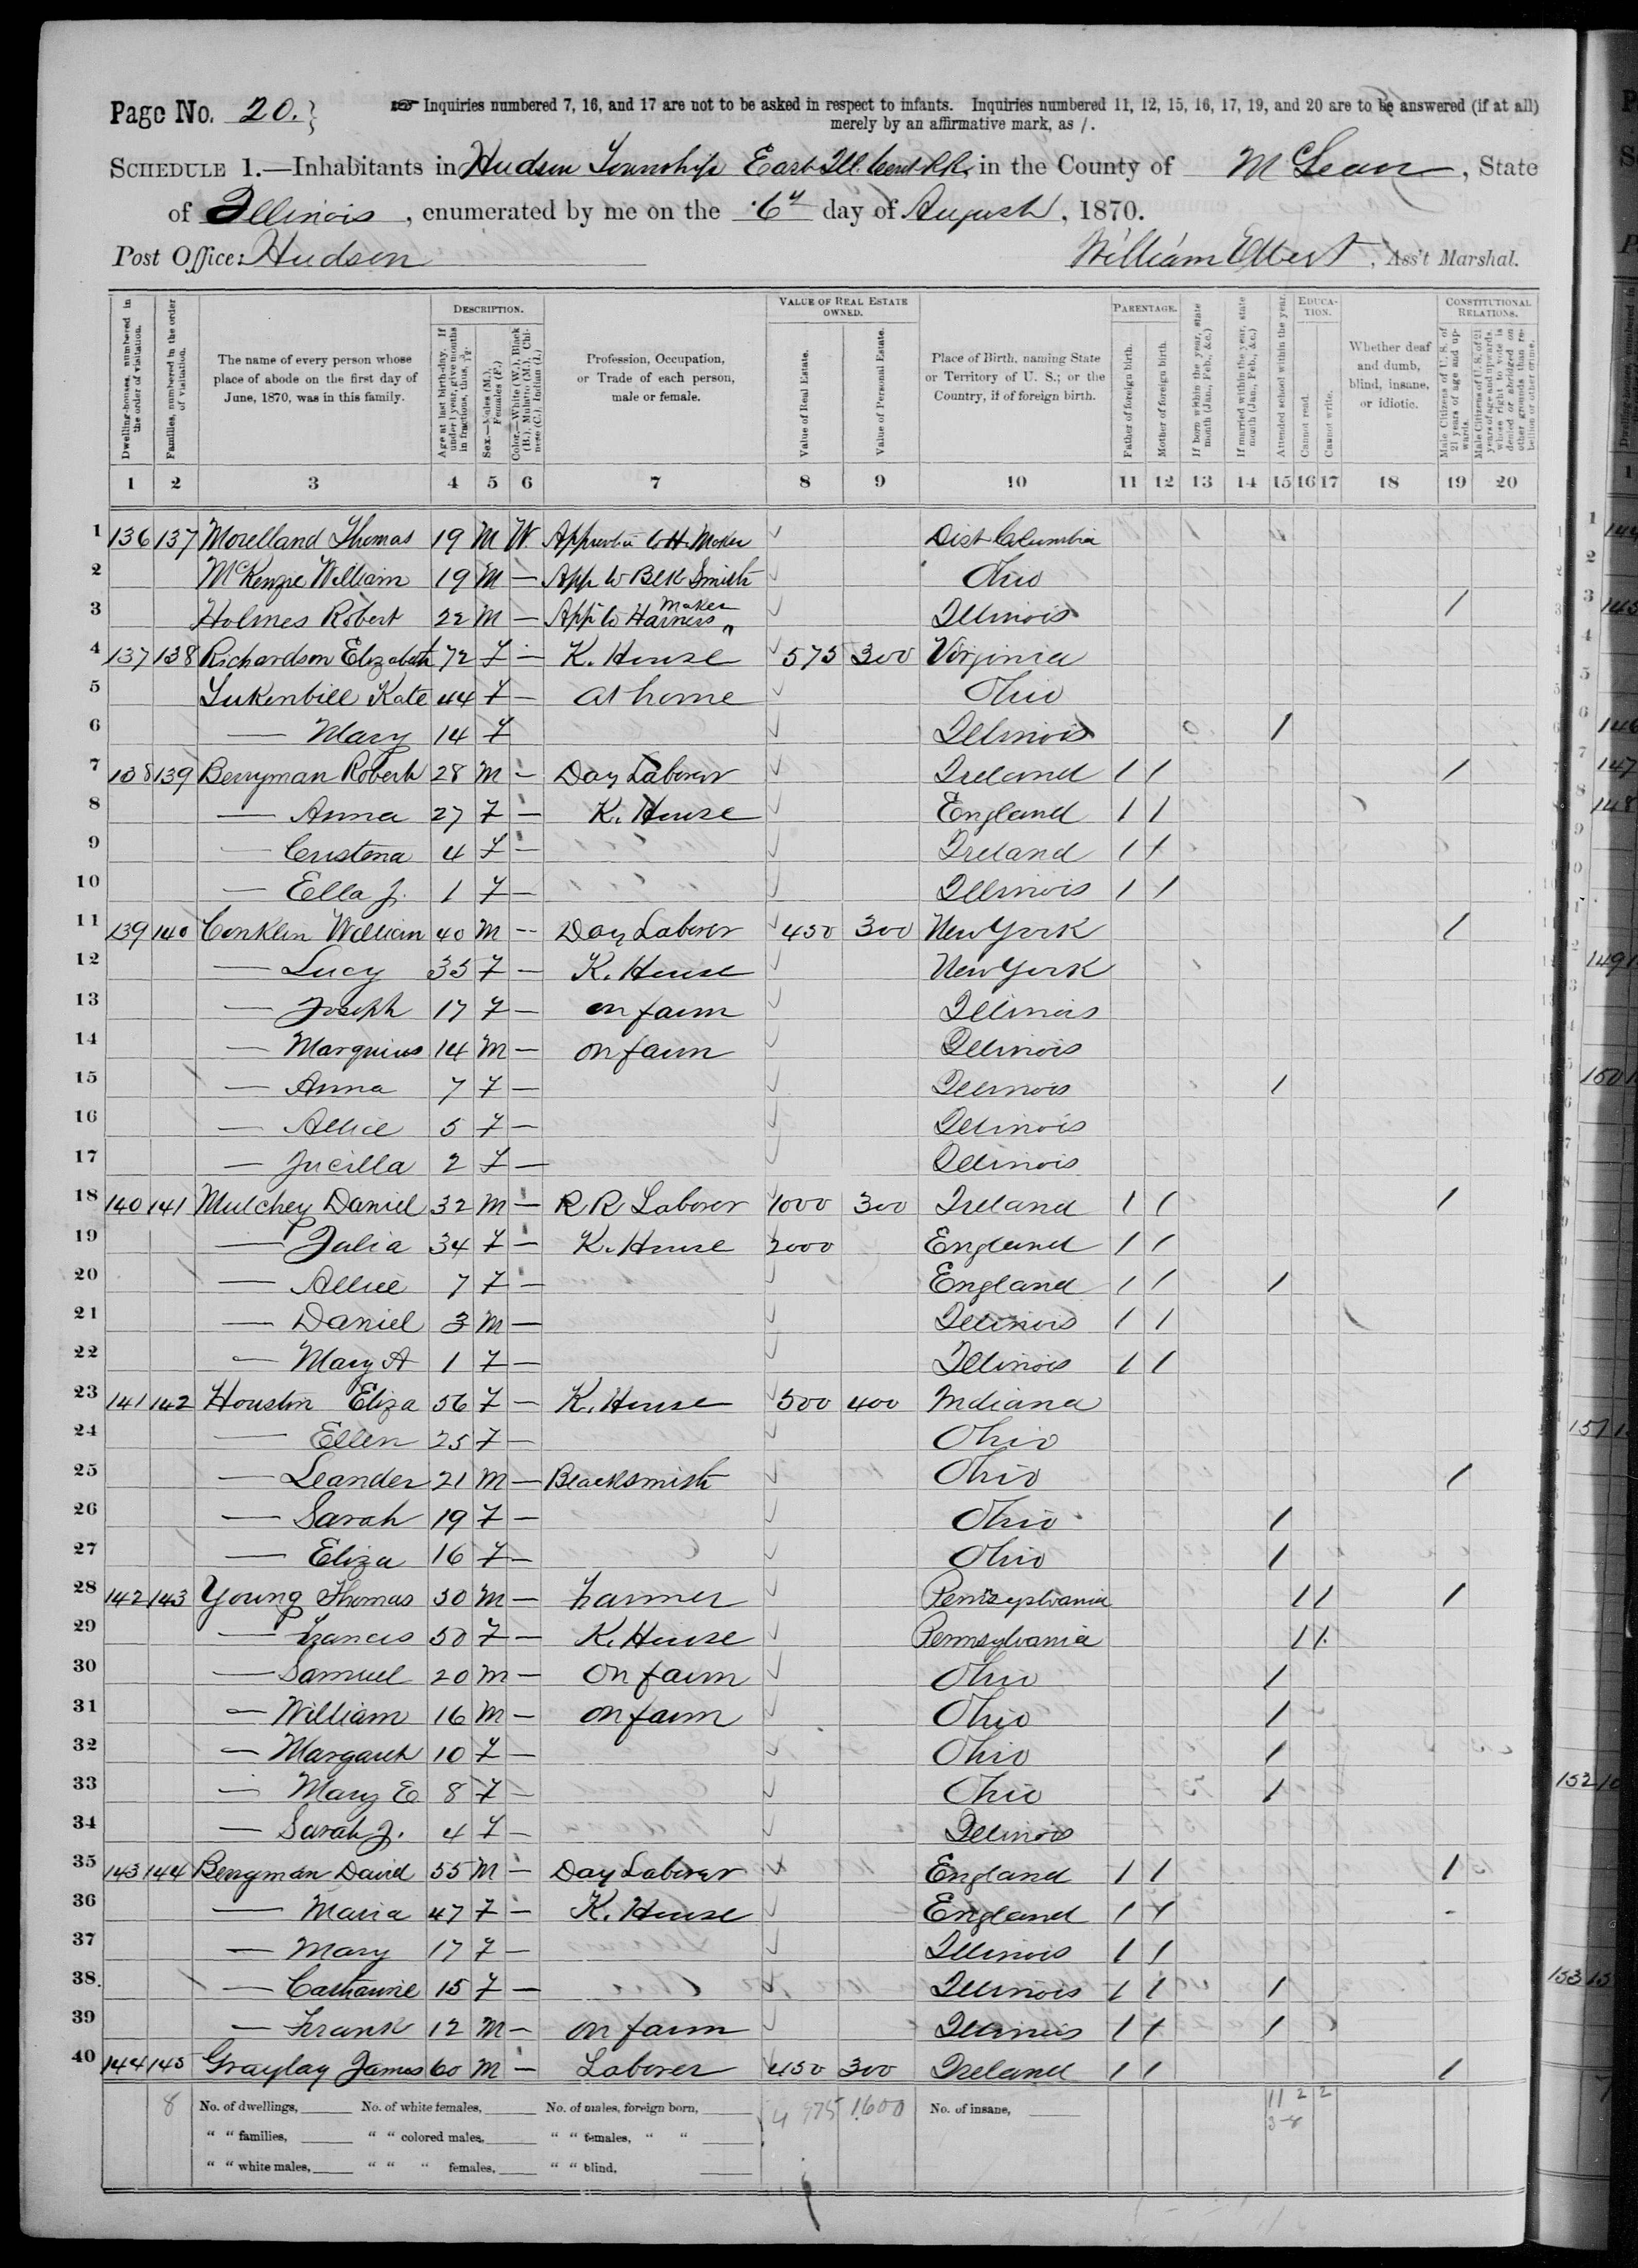 Page No. 20.
Inquiries numbered 7, 16, and 17 are not to be asked in respect to infants. Inquiries numbered 11, 12, 15, 16, 17, 19, and 20 are to be answered (if at all)
merely by an affirmative mark, as /.
SCHEDULE 1.—Inhabitants in Hudson Township East Ill. Cent R.R., in the County of McLean, State
of Illinois, enumerated by me on the 6th day of August, 1870.
Post Office: Hudson William Elbert, Ass't Marshal.
DESCRIPTION. VALUE OF REAL ESTATE OWNED. PARENTAGE. EDUCATION. CONSTITUTIONAL RELATIONS.
Dwelling-houses, numbered in the order of visitation.
Families, numbered in the order of visitation.
The name of every person whose place of abode on the first day of June, 1870, was in this family.
Age at last birth-day. If under 1 year, give months in fractions, thus, 3/12.
Sex.—Males (M.), Females (F.)
Color.—White (W.), Black (B.), Mulatto (M.), Chinese (C.), Indian (I.)
Profession, Occupation, or Trade of each person, male or female.
Value of Real Estate.
Value of Personal Estate.
Place of Birth, naming State or Territory of U. S.; or the Country, if of foreign birth.
Father of foreign birth.
Mother of foreign birth.
If born within the year, state month (Jan., Feb., &c.)
If married within the year, state month (Jan., Feb., &c.)
Attended school within the year.
Cannot read.
Cannot write.
Whether deaf and dumb, blind, insane, or idiotic.
Male Citizens of U. S. of 21 years of age and upwards.
Male Citizens of U. S. of 21 years of age and upwards, whose right to vote is denied or abridged on other grounds than rebellion or other crime.
1 2 3 4 5 6 7 8 9 10 11 12 13 14 15 16 17 18 19 20
1 136 137 Morelland Thomas 19 M W. Maker Dist Columbia
2 McKenzie William 19 M — App to Blk Smith Ohio
3 Holmes Robert 22 M — App to Harness Maker Illinois /
4 137 138 Richardson Elizabeth 72 F — K. House 575 300 Virginia
5 Lukenbill Kate 44 F — At home Ohio
6 — Mary 14 F Illinois /
7 138 139 Berryman Robert 28 M — Day Laborer Ireland / / /
8 — Anna 27 F — K. House England / /
9 — Cristena 4 F — Ireland / /
10 — Ella J. 1 F — Illinois / /
11 139 140 Conklin William 40 M — Day Laborer 450 300 New York /
12 — Lucy 35 F — K. House New York
13 — Joseph 17 F — on farm Illinois
14 — Marquius 14 M — on farm Illinois
15 — Anna 7 F — Illinois /
16 — Allice 5 F — Illinois
17 — Jucilla 2 F — Illinois
18 140 141 Mulchey Daniel 32 M — R R Laborer 1000 300 Ireland / / /
19 — Julia 34 F — K. House 2000 England / /
20 — Allice 7 F — England / / /
21 — Daniel 3 M — Illinois / /
22 — Mary A 1 F — Illinois / /
23 141 142 Houston Eliza 56 F — K. House 500 400 Indiana
24 — Ellen 25 F — Ohio
25 — Leander 21 M — Blacksmith Ohio /
26 — Sarah 19 F — Ohio /
27 — Eliza 16 F — Ohio /
28 142 143 Young Thomas 50 M — Farmer Pennsylvania / / /
29 — Francis 50 F — K. House Pennsylvania / /
30 — Samuel 20 M — On farm Ohio /
31 — William 16 M — on farm Ohio /
32 — Margaret 10 F — Ohio /
33 — Mary E 8 F — Ohio /
34 — Sarah J. 4 F — Illinois
35 143 144 Berryman David 55 M — Day Laborer England / / /
36 — Maria 47 F — K. House England / /
37 — Mary 17 F — Illinois / /
38. — Catharine 15 F — Illinois / / /
39 — Frank 12 M — on farm Illinois / / /
40 144 145 Graylay James 60 M — Laborer 450 300 Ireland / / /
8 No. of dwellings, No. of white females, No. of males, foreign born, 4975 1600 No. of insane, 11 2 2
" " families, " " colored males, " " females, " "
" " white males, " " " females, " " blind,